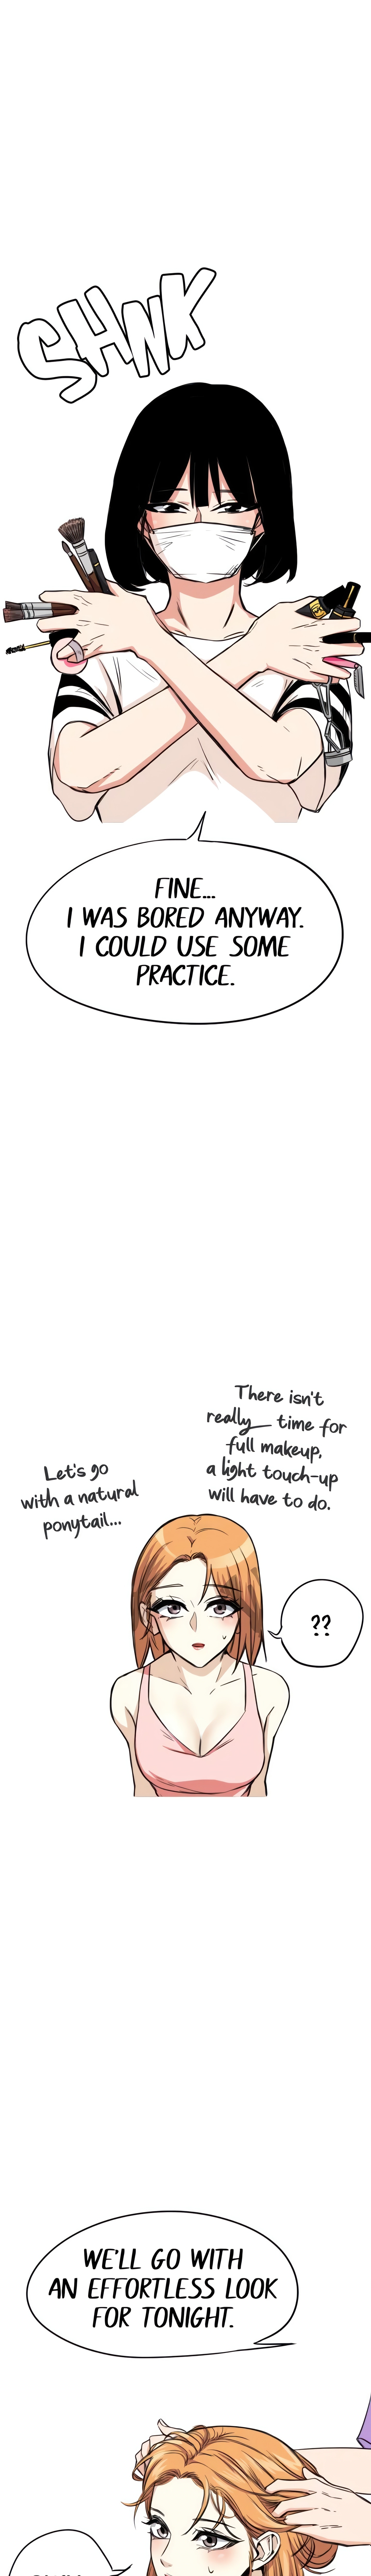 SHNK
FINE...
I WAS BORED ANYWAY.
I COULD USE SOME
PRACTICE.
There isn't
really time for
full makeup,
a light touch-up
will have to do.
Let's go
with a natural
ponytail...
??
WE'LL GO WITH
AN EFFORTLESS LOOK
FOR TONIGHT.